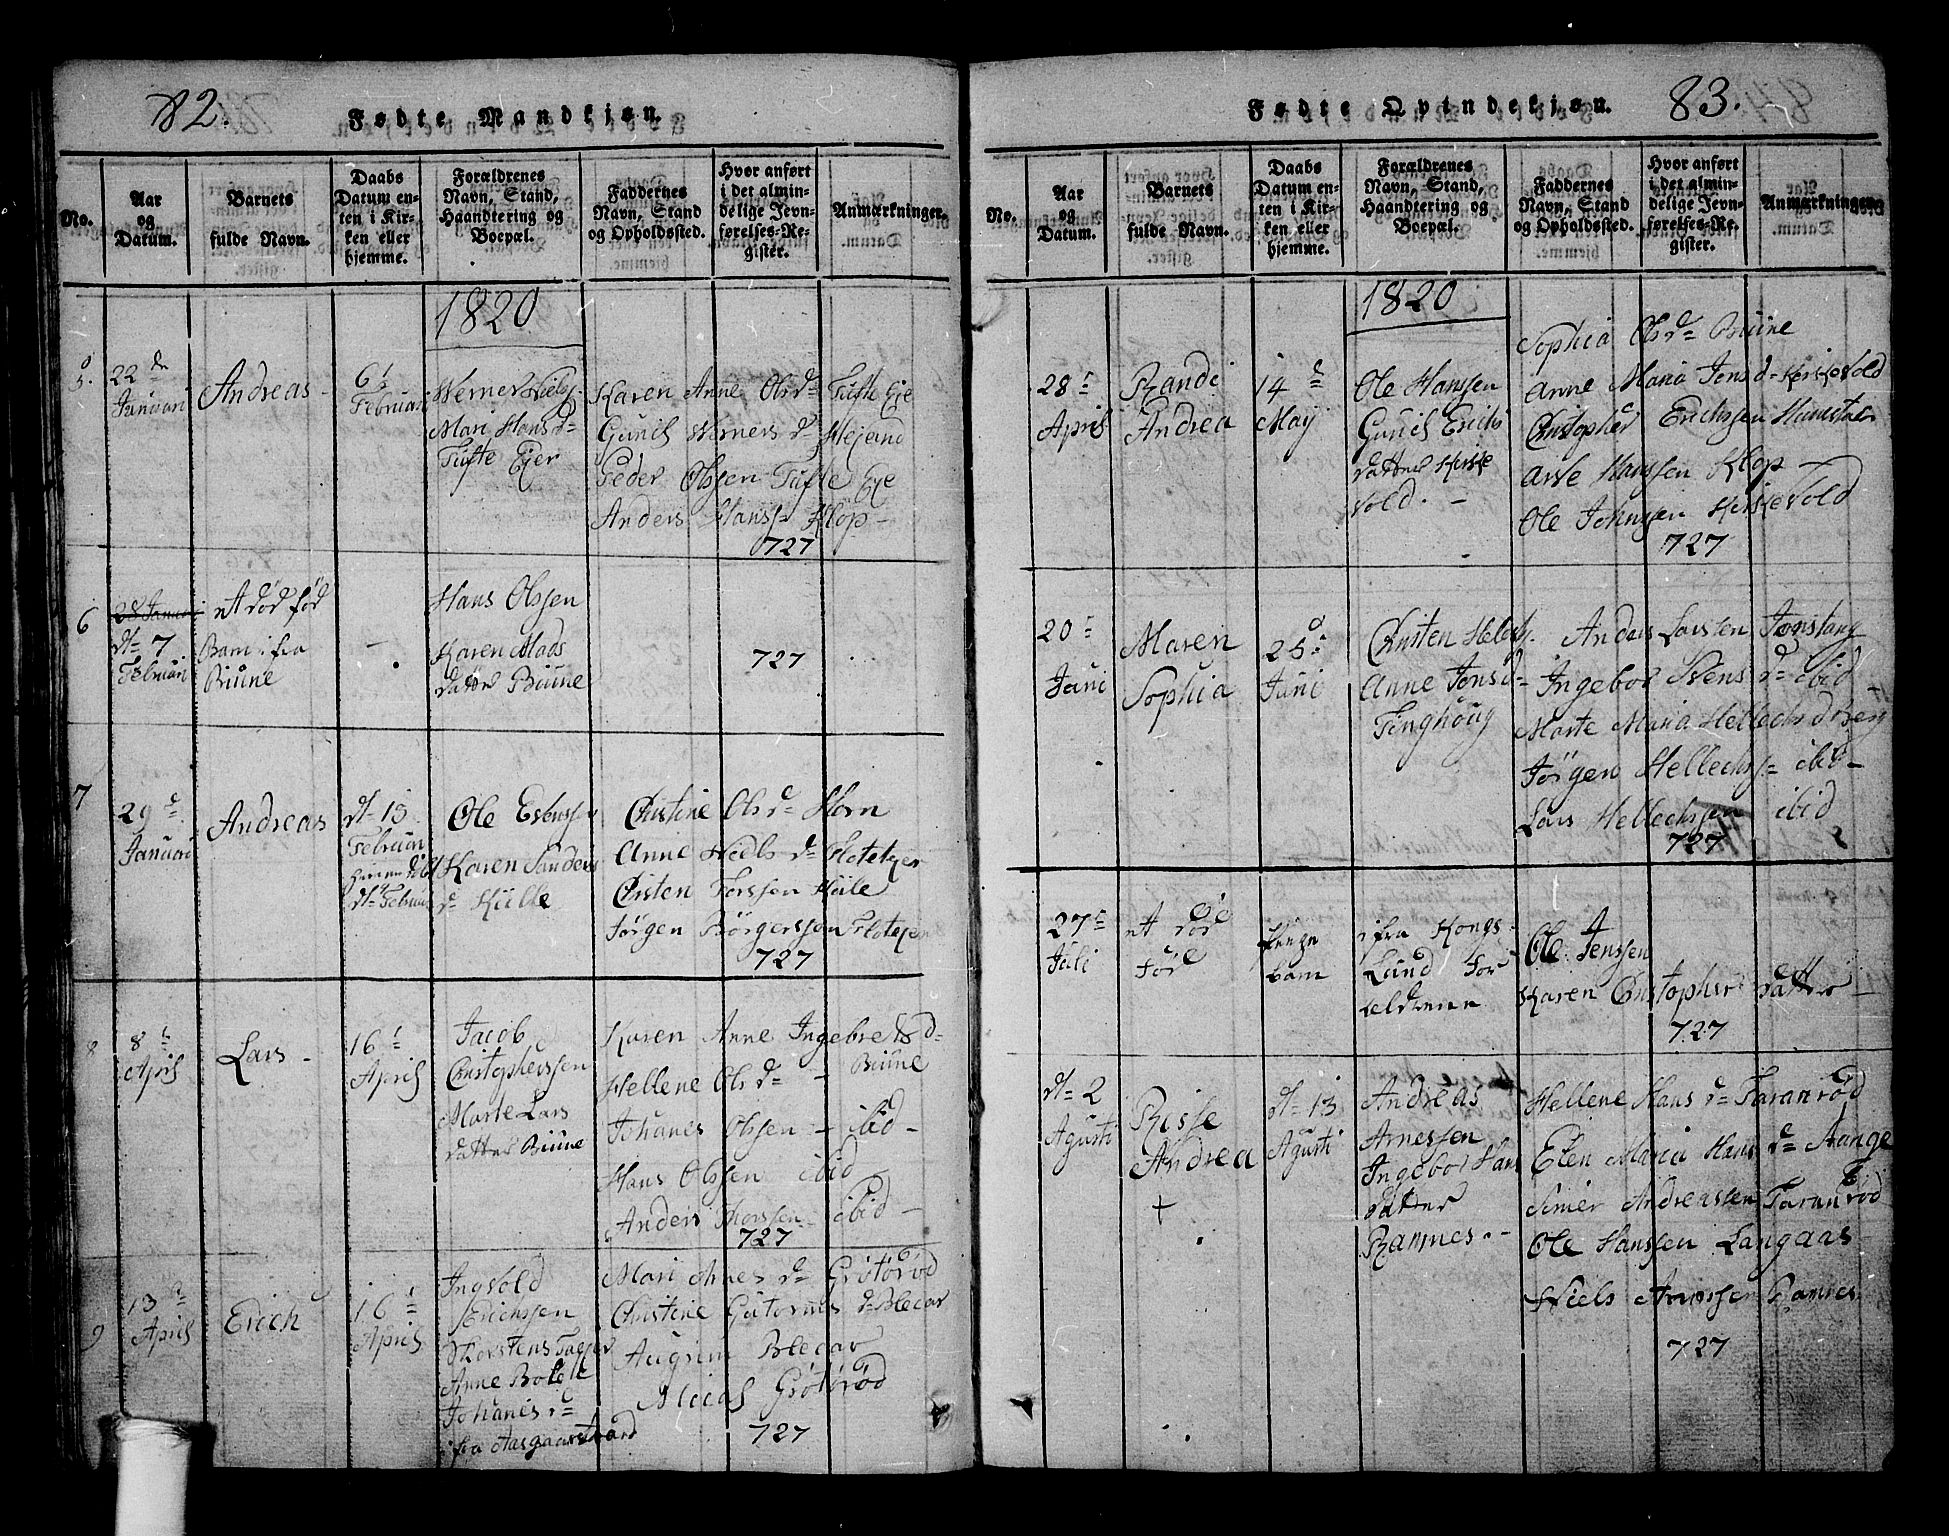 82.
Fødte Mandkjøn.
No.
Aar
og
Datum.
Barnets
fulde Navn.
Daabs
Datum en-
ten i Kir-
ken eller
hjemme.
Forældrenes
Navn, Stand,
Haandtering og
Boepæl.
Faddernes
Navn, Stand
og Opholdssted.
Hvor anført
i det almin-
delige Jevn-
førelses-Re-
gister.
Anmærkninger.
1820
5.
22 de
Januari
Andreas
6 t
Februari
Werner
Mari Hans d-
Tufte Ejer
Karen Anne Ols d- Tufte Eje
Gunil Werners d- Hejand
Peder Olssen Tufte Eje
Anders Hanss- Klop -
727
6
28 Januari
d- 7
Februari
et død fød
Barn ifra
Biüne
-
Hans Olssen
Karen Mads
datter Biüne
727
7
29 d
Januari
Andreas
d- 13
Februari
d- Februari
Ole Esbenssen
Karen Sanders
d- Külle
Christine Ols d- Horn
Anne Niels d- Flotetejer
Christen Torssen Hüle
Jørgen Børgerssen Flotejer
727
8
8 -
April
Lars -
16 -
April
Jacob
Christopherssen
Marte Lars
datter Biüne
Karen Anne Ingebretsd-
Hellene Ols d- - Biüne
Johanes Olssen - ibid -
Hans Olssen ibid
Anders Thorssen - ibid -
727
9
13 -
April
Erich
16 -
April
Ingvold
Erichssen
Anne Botele
Johanes d-
ifra Aasgaarstrand
Mari Arnes d- Grøtørød
Christine Gutorms d- Blecar
Augrim Blecar
Niels Grøtørød
727
83.
Fødte Qvindekjøn.
No.
Aar
og
Datum.
Barnets
fulde Navn.
Daabs
Datum en-
ten i Kir-
ken eller
hjemme.
Forældrenes
Navn, Stand,
Haandtering og
Boepæl.
Faddernes
Navn, Stand
og Opholdssted.
Hvor anført
i det almin-
delige Jevn-
førelses-Re-
gister.
Anmærkninger.
1820
28 -
April
Randi
Andrea
14 d
Maÿ
Ole Hanssen
Gunil Erichs
datter Kirke
vold. -
Sophia Ols d- Biüne
Anne Maria Jensd- Kirkevold
Christopher Erichssen
Arve Hanssen Klop -
Ole Johnssen Kirkevold
727
20 -
Juni
Maren
Sophia
25 d
Juni
Christen Hellech.
Anne Jonsd-
Tinghoüg
Anders Larssen Jonstang
Ingebor Svens d- ibid
Marte Maria Hellechsd Berg
Jørgen Hellechss- ibid -
Lars Hellechssen ibid
727
27 -
Juli
et død
før
pige
barn
ifra Kongs-
Lund For
eldrene
Ole Jenssen
Karen Christopher datter -
727
d- 2
Agusti
Risse
Andrea
+
d- 13
Agusti
Andreas
Arnessen
Ingebor Hans
datter
Ramnes. -
Hellene Hans d- Taranrød
Elen Maria Hans d- Aange
Simer Andreassen Taranrød
Ole Hanssen Langaas -
Niels Arnessen Ramnes
727